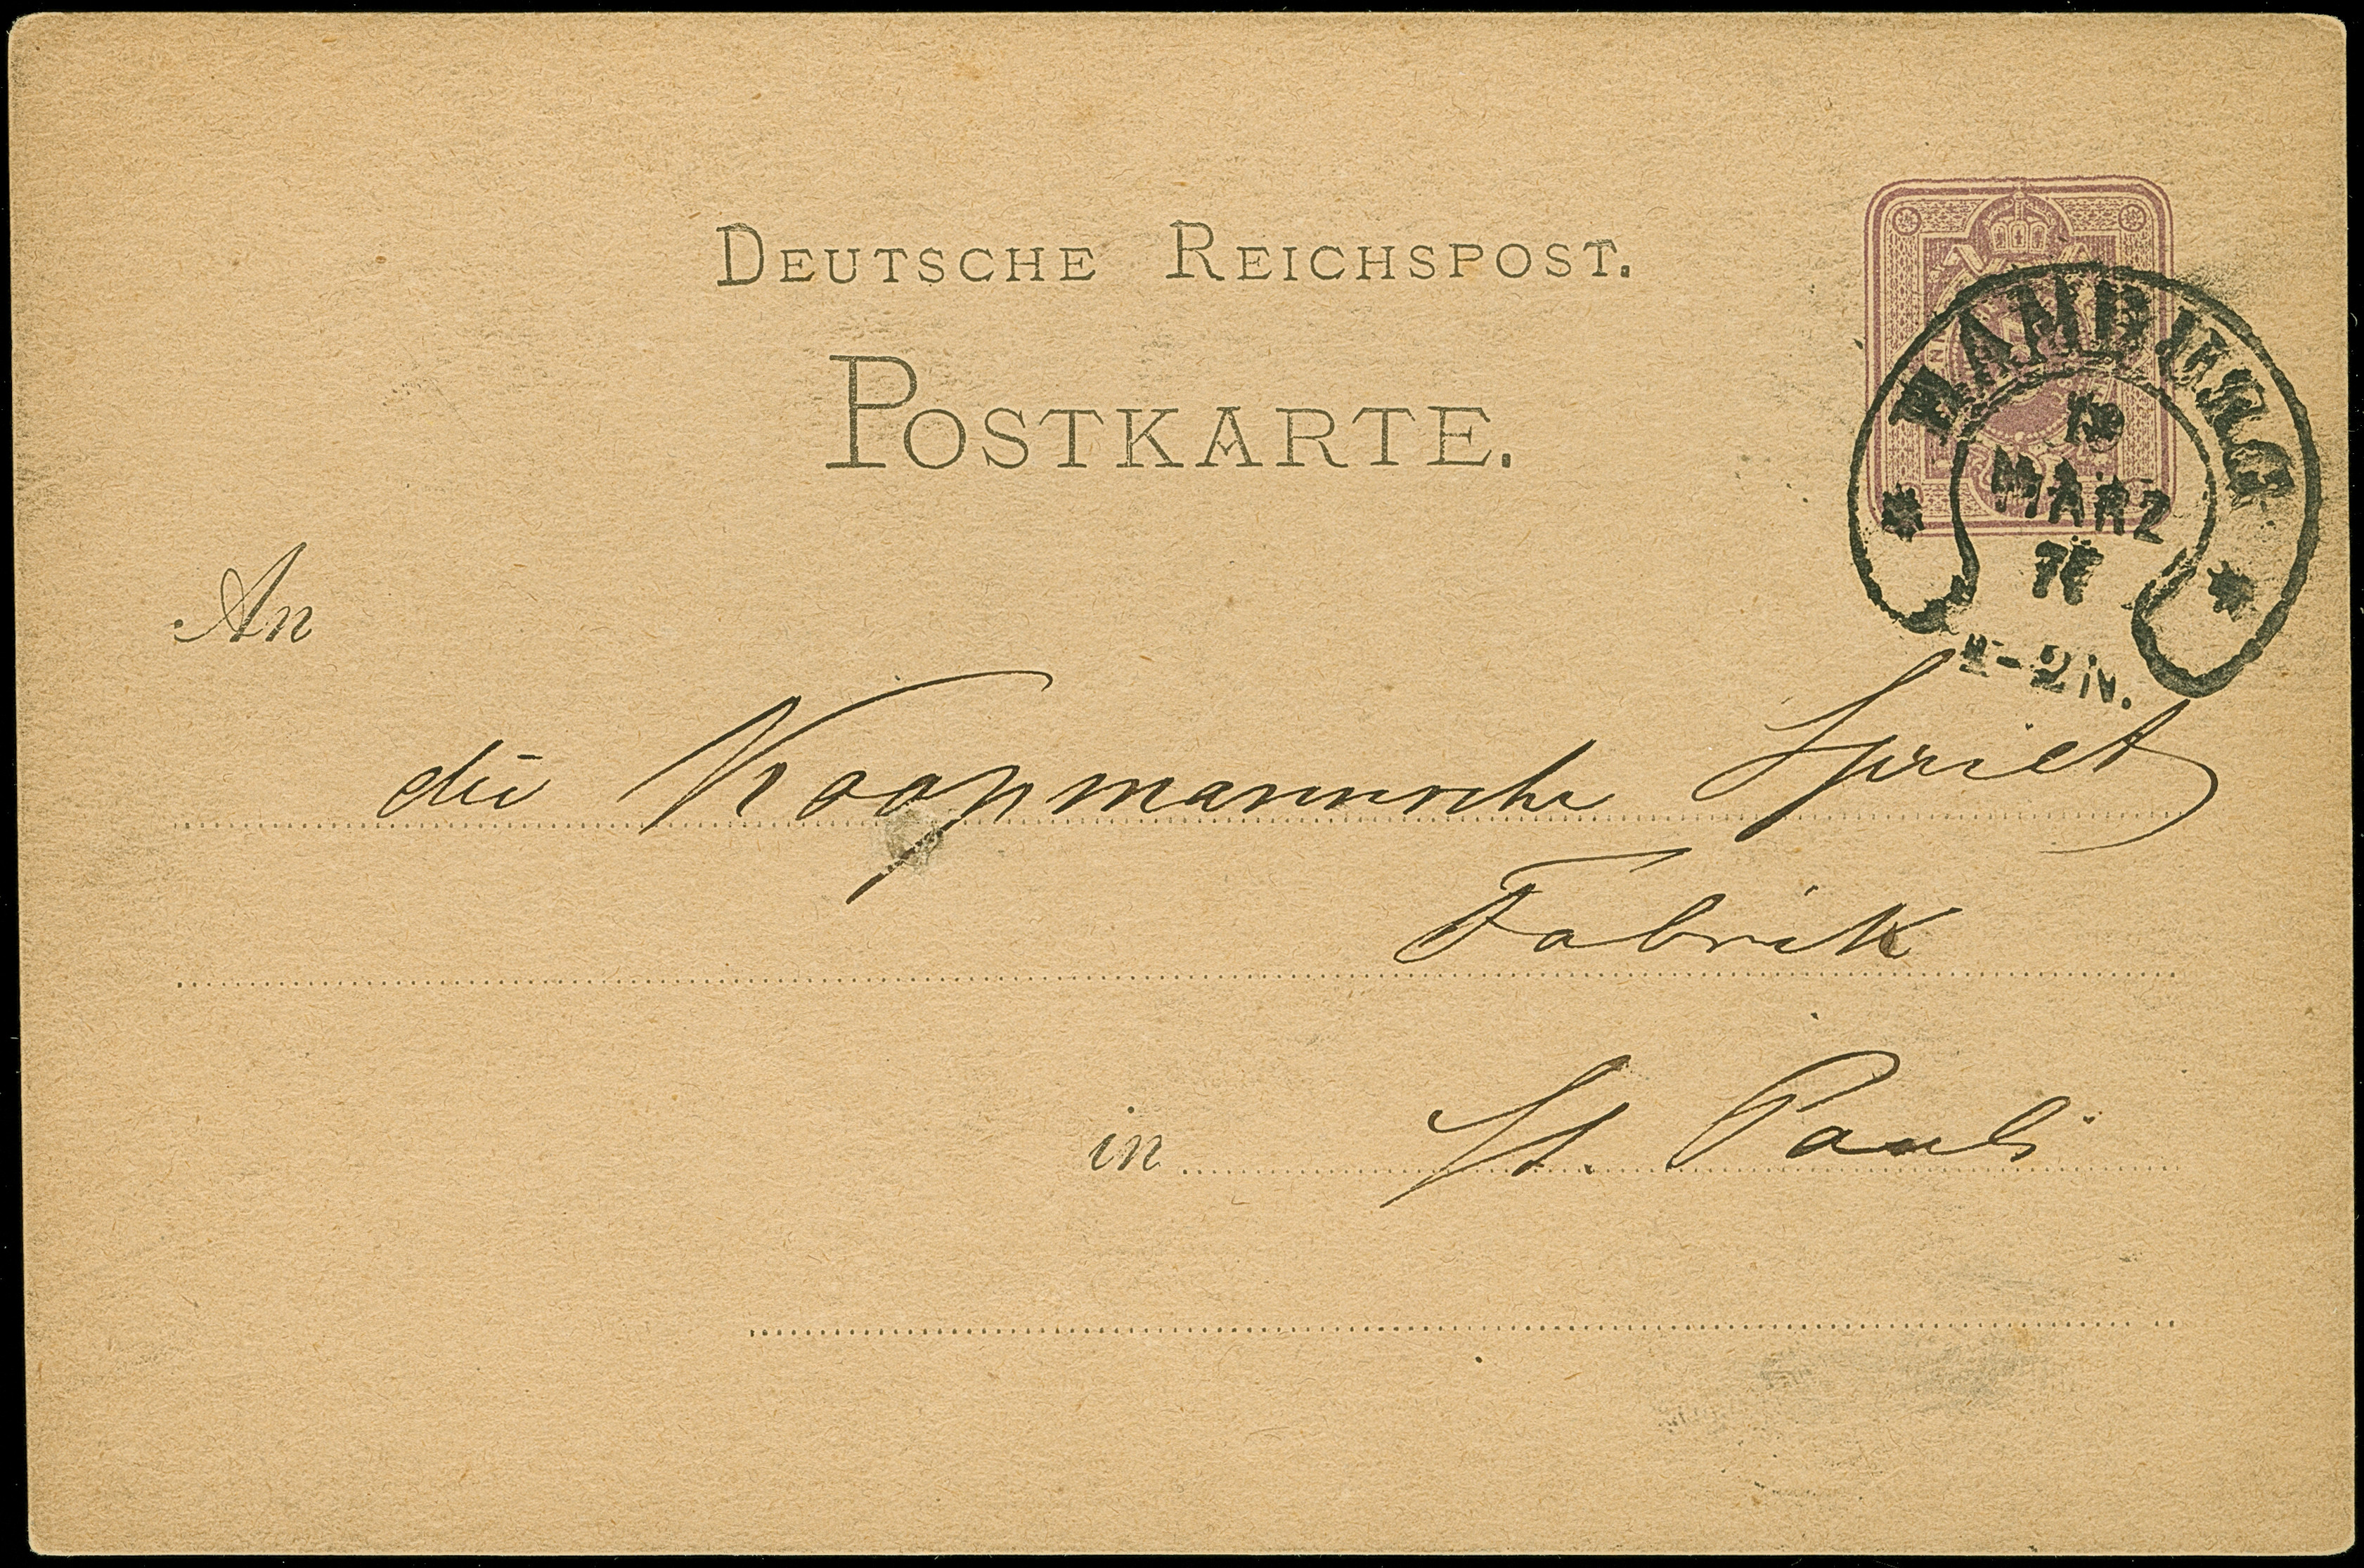 DEUTSCHE REICHSPOST.
POSTKARTE.
HAMBURG
MARZ
-2N.
An
die Koopmannsche Spriet
Fabrik
in St. Pauli